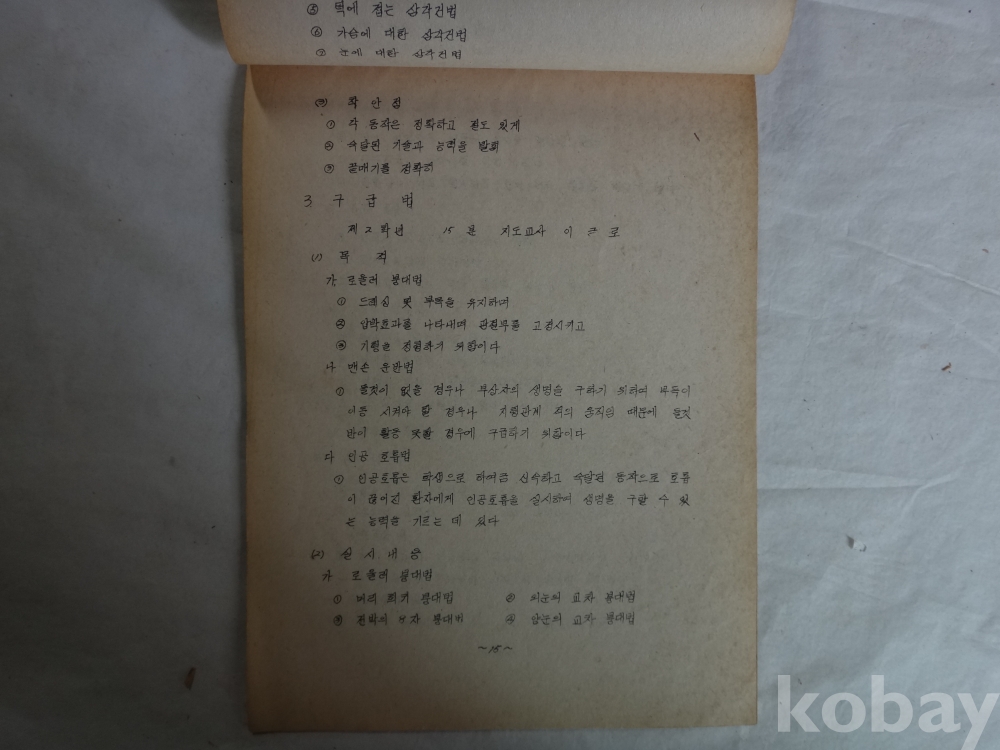 ⑤ 턱에 접는 삼각건법
⑥ 가슴에 대한 삼각건법
⑦ 눈에 대한 삼각건법
(3) 착안점
① 각 동작은 정확하고 절도 있게
② 숙달된 기술과 능력을 발휘
③ 끝매기를 정확히
3. 구급법
제2학년 15분 지도교사 이근로
(1) 목적
가. 로울러 붕대법
① 드레싱 및 부목을 유지하며
② 압박효과를 나타내며 관절부를 고정시키고
③ 기렴을 경렴하기 위함이다
나 맨손 운반법
① 들것이 없을 경우나 부상자의 생명을 구하기 위하여 부득이
이동 시켜야 할 경우나 지형관계 적의 움직임 때문에 들것
반이 활동 못할 경우에 구급하기 위함이다
다 인공 호흡법
① 인공호흡은 학생으로 하여금 신속하고 숙달된 동작으로 호흡
이 끊어진 환자에게 인공호흡을 실시하여 생명을 구할 수 있
는 능력을 기르는 데 있다
(2) 실시내용
가 로울러 붕대법
① 머리 회귀 붕대법 ② 외눈의 교차 붕대법
③ 전박의 8자 붕대법 ④ 양눈의 교차 붕대법
~15~
kobay